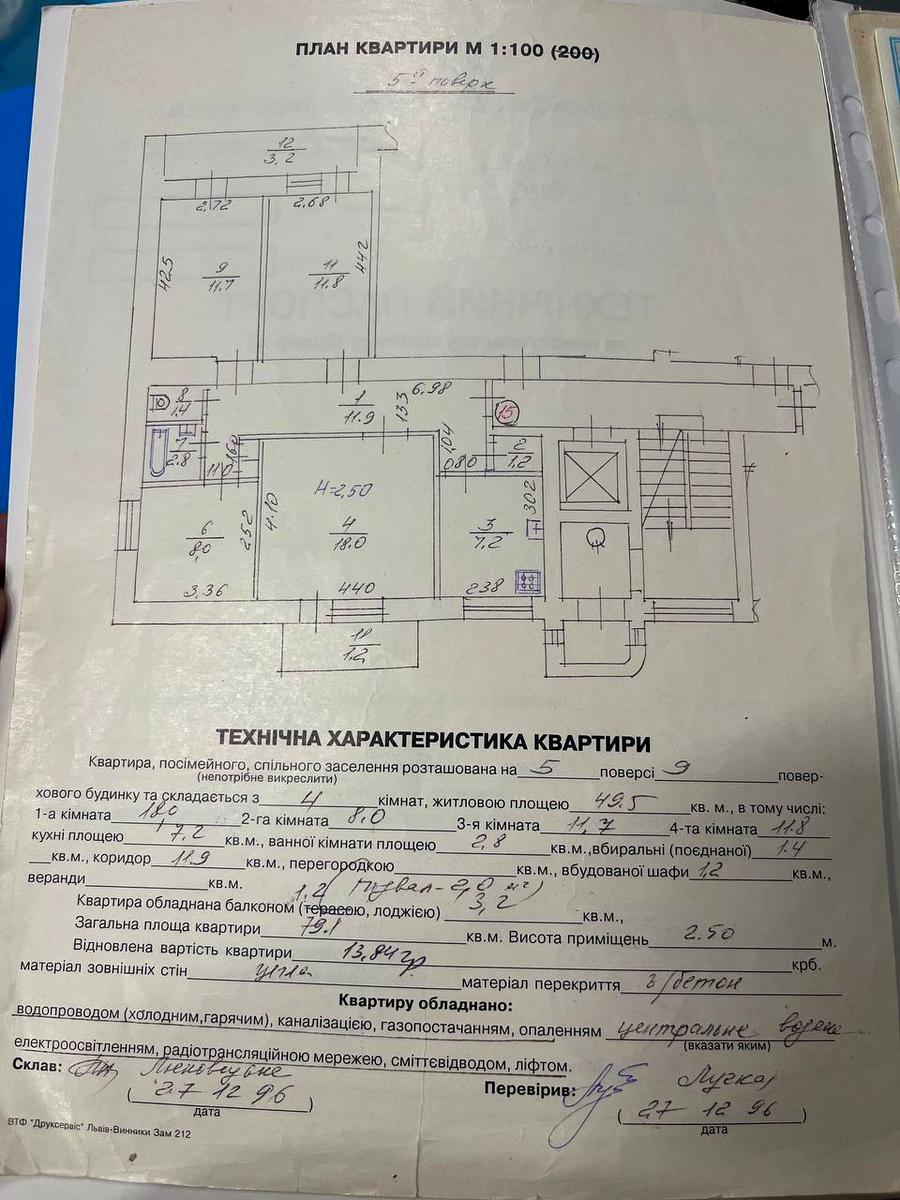 ПЛАН КВАРТИРИ М 1:100 (200)
5й поверх
12
3,2
2,72
2,68
425
9
11.7
11
11.8
442
8
1.4
1
11.9
133
6,98
15
7
2.8
110
160
104
080
2
1,2
H=2,50
302
6
8,0
252
4.10
4
18.0
3
7.2
3,36
440
238
1.2
ТЕХНІЧНА ХАРАКТЕРИСТИКА КВАРТИРИ
Квартира, посімейного, спільного заселення розташована на 5 поверсі 9 повер-
(непотрібне викреслити)
хового будинку та складається з 4 кімнат, житловою площею 49.5 кв. м., в тому числі:
1-а кімната 18,0 2-га кімната 8,0 3-я кімната 11,7 4-та кімната 11.8
кухні площею 7,2 кв.м., ванної кімнати площею 2,8 кв.м.,вбиральні (поєднаної) 1.4
кв.м., коридор 11.9 кв.м., перегородкою кв.м., вбудованої шафи 1,2 кв.м.,
веранди кв.м. 1.2 (підвал-2,0 м2)
Квартира обладнана балконом (терасою, лоджією) 3,2 кв.м.,
Загальна площа квартири 79.1 кв.м. Висота приміщень 2.50 м.
Відновлена вартість квартири 13,84 гр крб.
матеріал зовнішніх стін цегла матеріал перекриття з/бетон
Квартиру обладнано:
водопроводом (холодним,гарячим), каналізацією, газопостачанням, опаленням центральне водяне
(вказати яким)
електроосвітленням, радіотрансляційною мережею, сміттєвідводом, ліфтом.
Склав:
Перевірив:
( 27 12 96 )
дата
( 27 12 96 )
дата
ВТФ "Друксервіс" Львів-Винники Зам 212